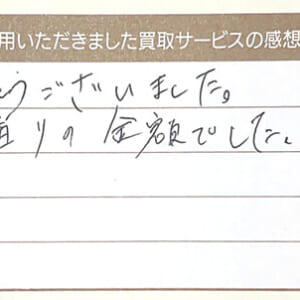 用いただきました買取サービスの感想
うございました。
りの金額でした。